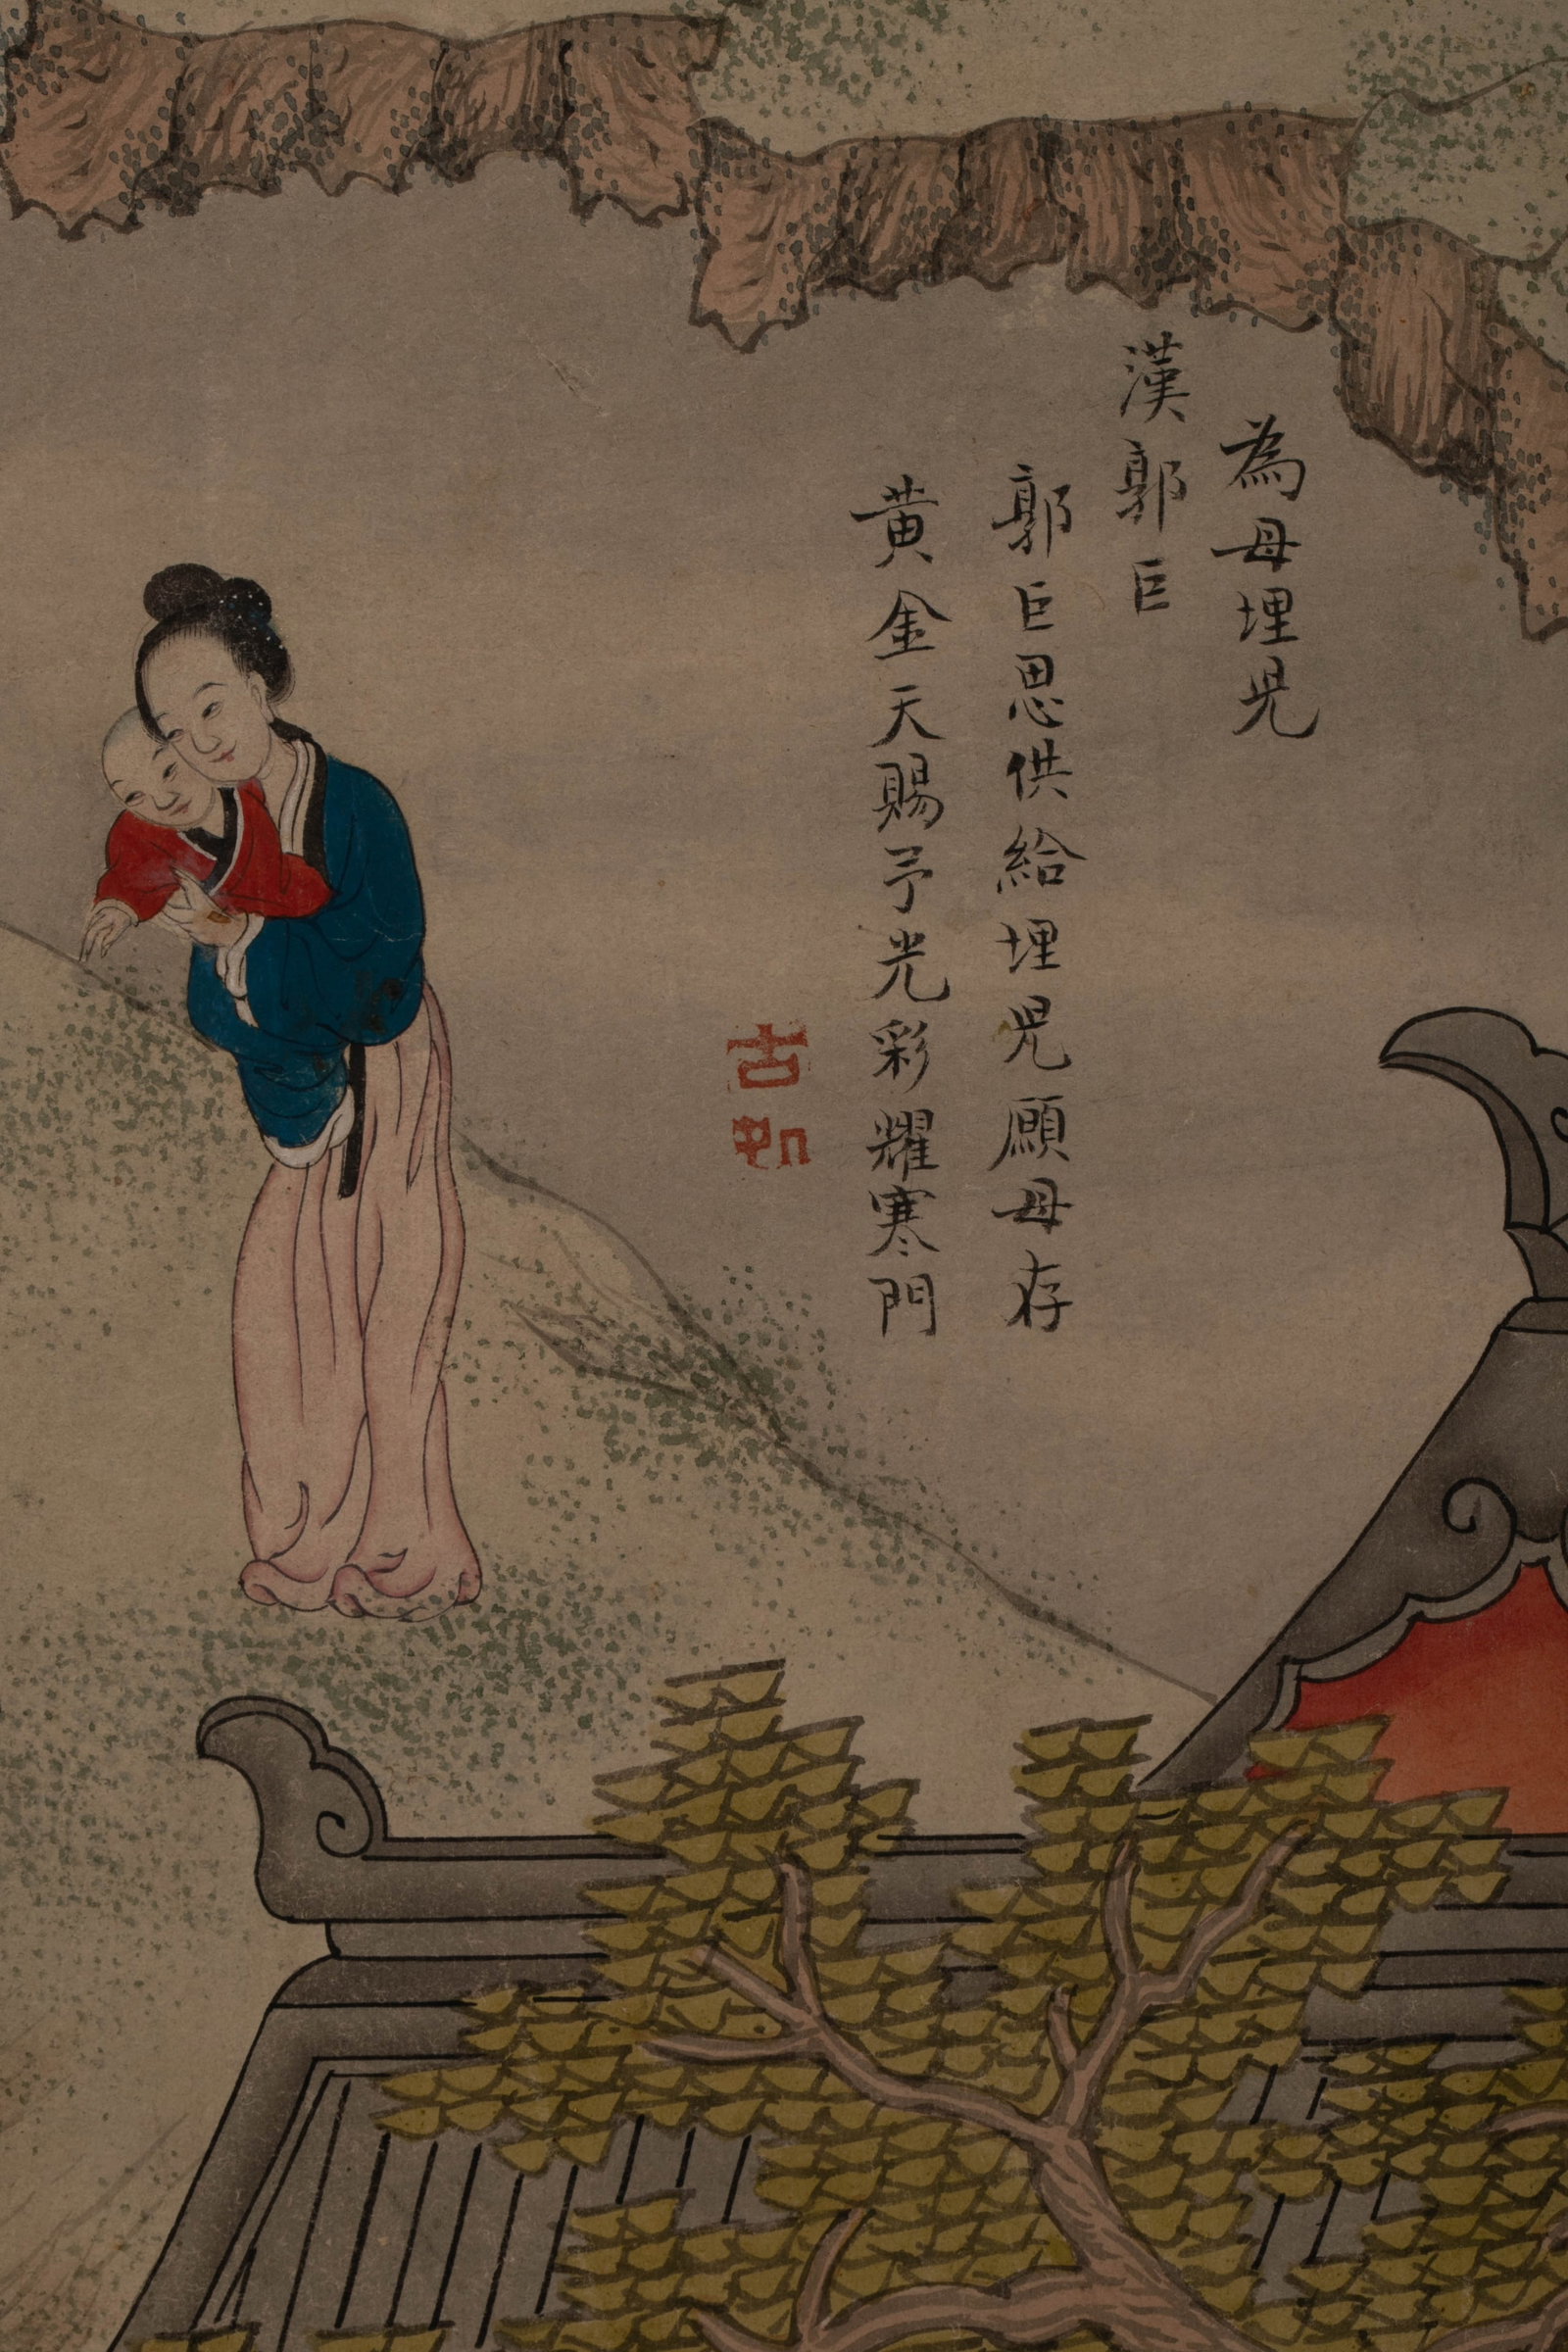 為母埋児
漢郭巨
郭巨思供給埋児願母存
黄金天賜予光彩耀寒門